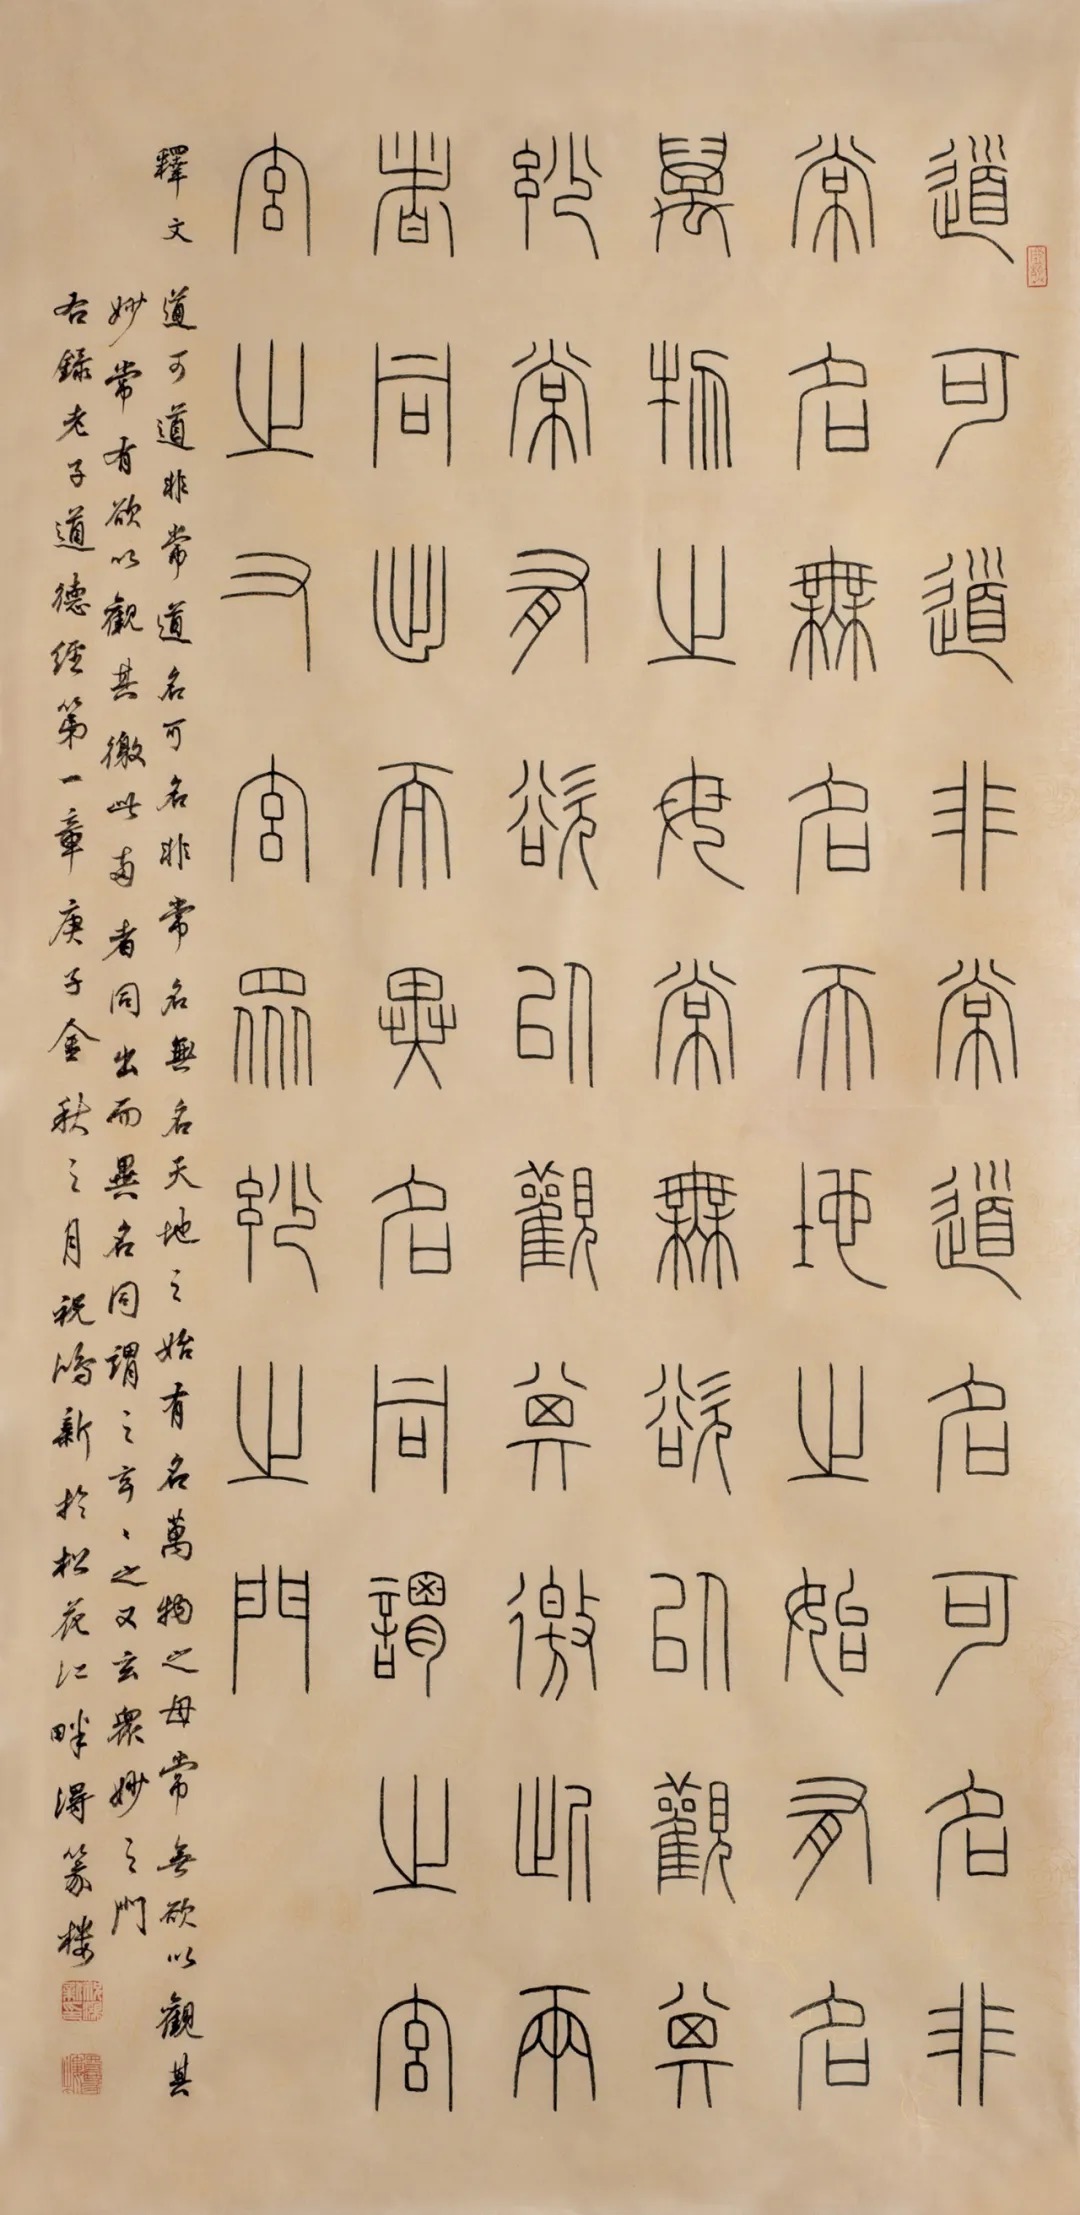 道可道非常道名可名非
常名無名天地之始有名
萬物之母常無欲以觀其
妙常有欲以觀其徼此兩
者同出而異名同謂之玄
玄之又玄眾妙之門
釋文
道可道非常道名可名非常名無名天地之始有名萬物之母常無欲以觀其
妙常有欲以觀其徼此两者同出而異名同謂之玄〻之又玄衆妙之門
右錄老子道德經第一章庚子金秋之月祝鴻新於松花江畔得篆楼